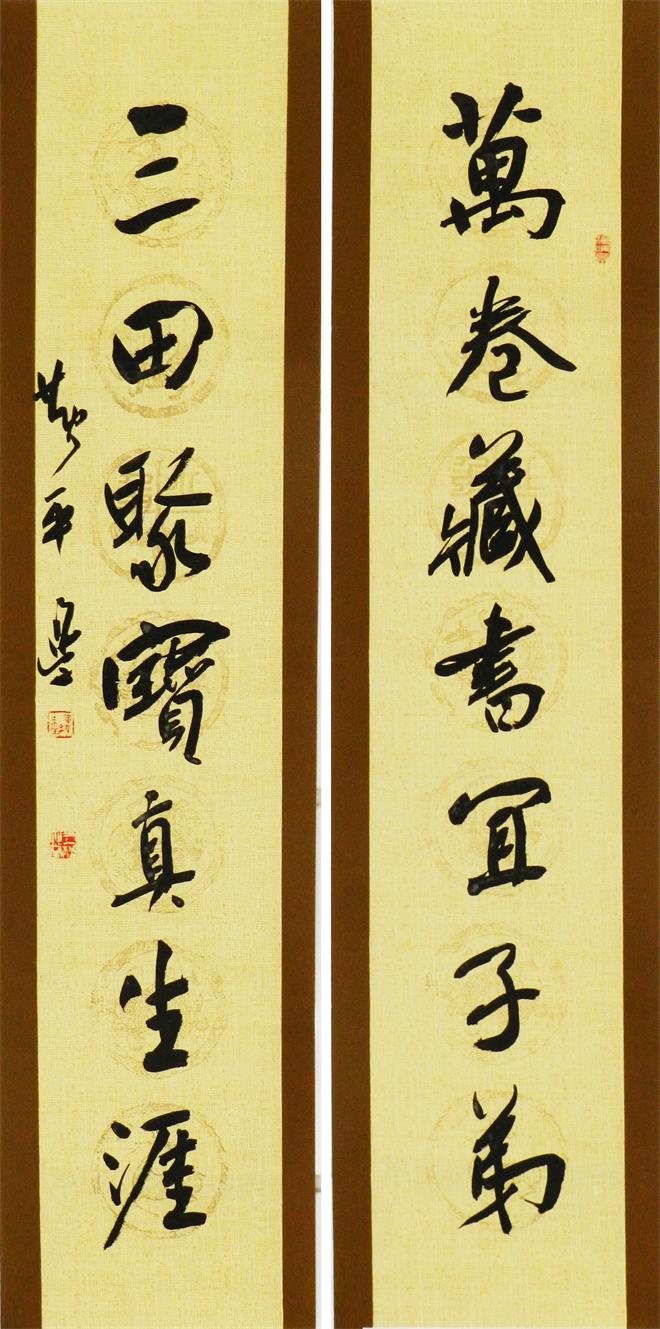 萬卷藏書宜子弟
三田聚寶真生涯
平